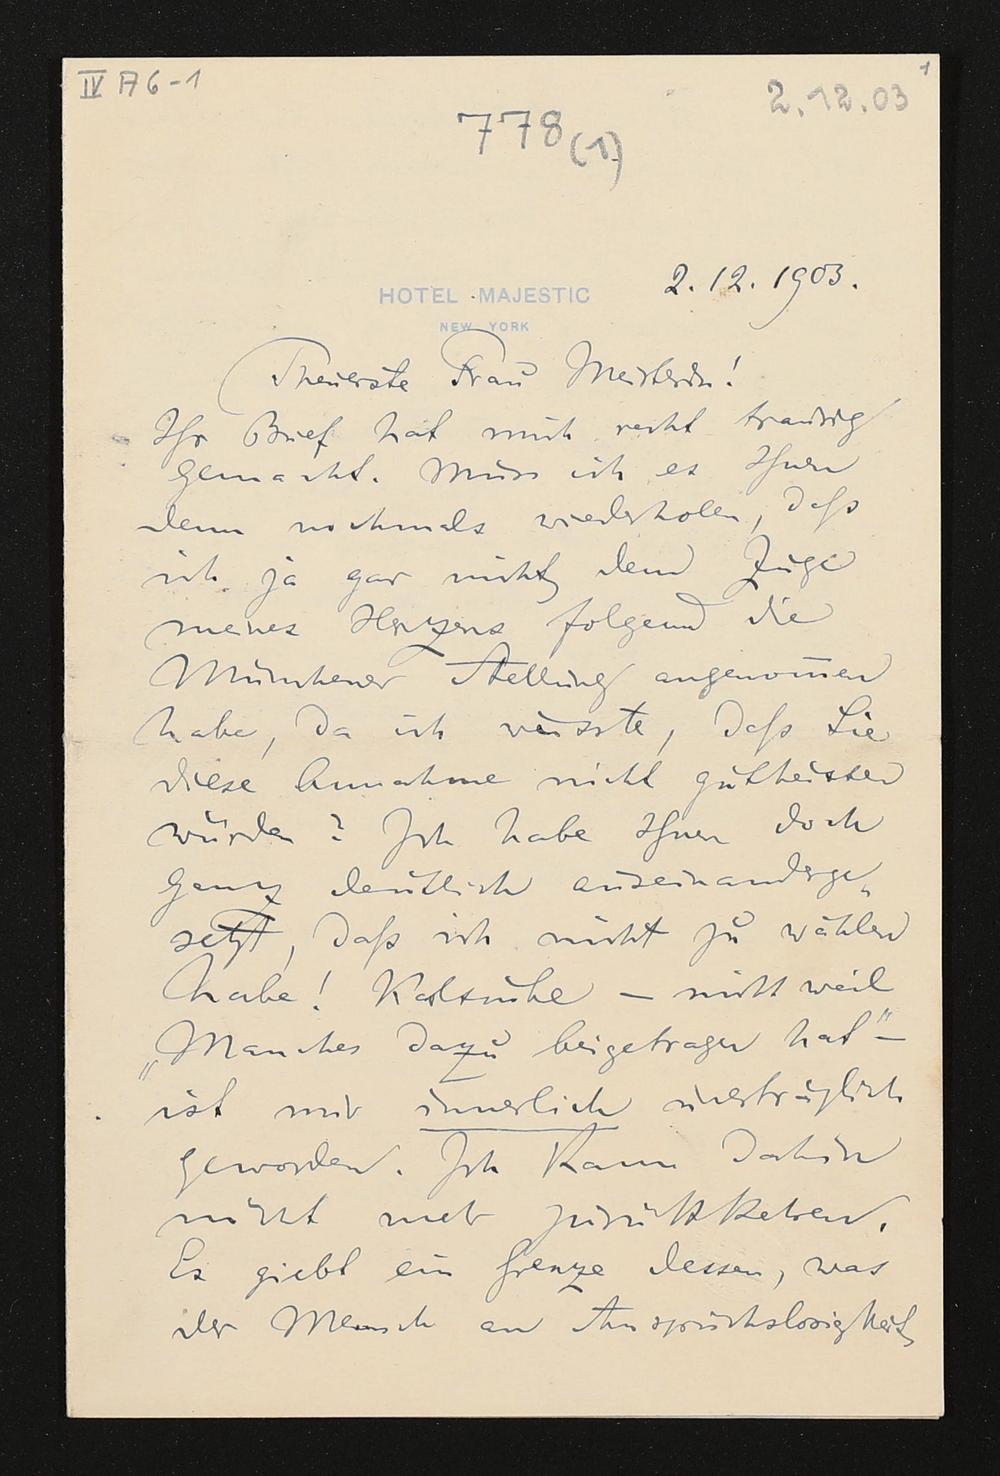 IV A 6-1
1
2.12.03
778 (1)
2.12.1903.
HOTEL MAJESTIC
NEW YORK
Theuerste Frau Meisterin!
Ihr Brief hat mich recht traurig
gemacht. Muss ich es Ihnen
denn nochmals wiederholen, daſs
ich ja gar nicht dem Zuge
meines Herzens folgend die
Münchener Stellung angenom̅en
habe, da ich wusste, daſs Sie
diese Annahme nicht gutheissen
würden? Ich habe Ihnen doch
ganz deutlich auseinanderge„
setzt, daſs ich nicht zu wählen
habe! Kalsruhe – nicht weil
„Manches dazu beigetragen hat" –
ist mir innerlich unerträglich
geworden. Ich kann dahin
nicht mehr zurückkehren.
Es giebt ein Grenze dessen, was
der Mensch an Anspruchslosigkeit